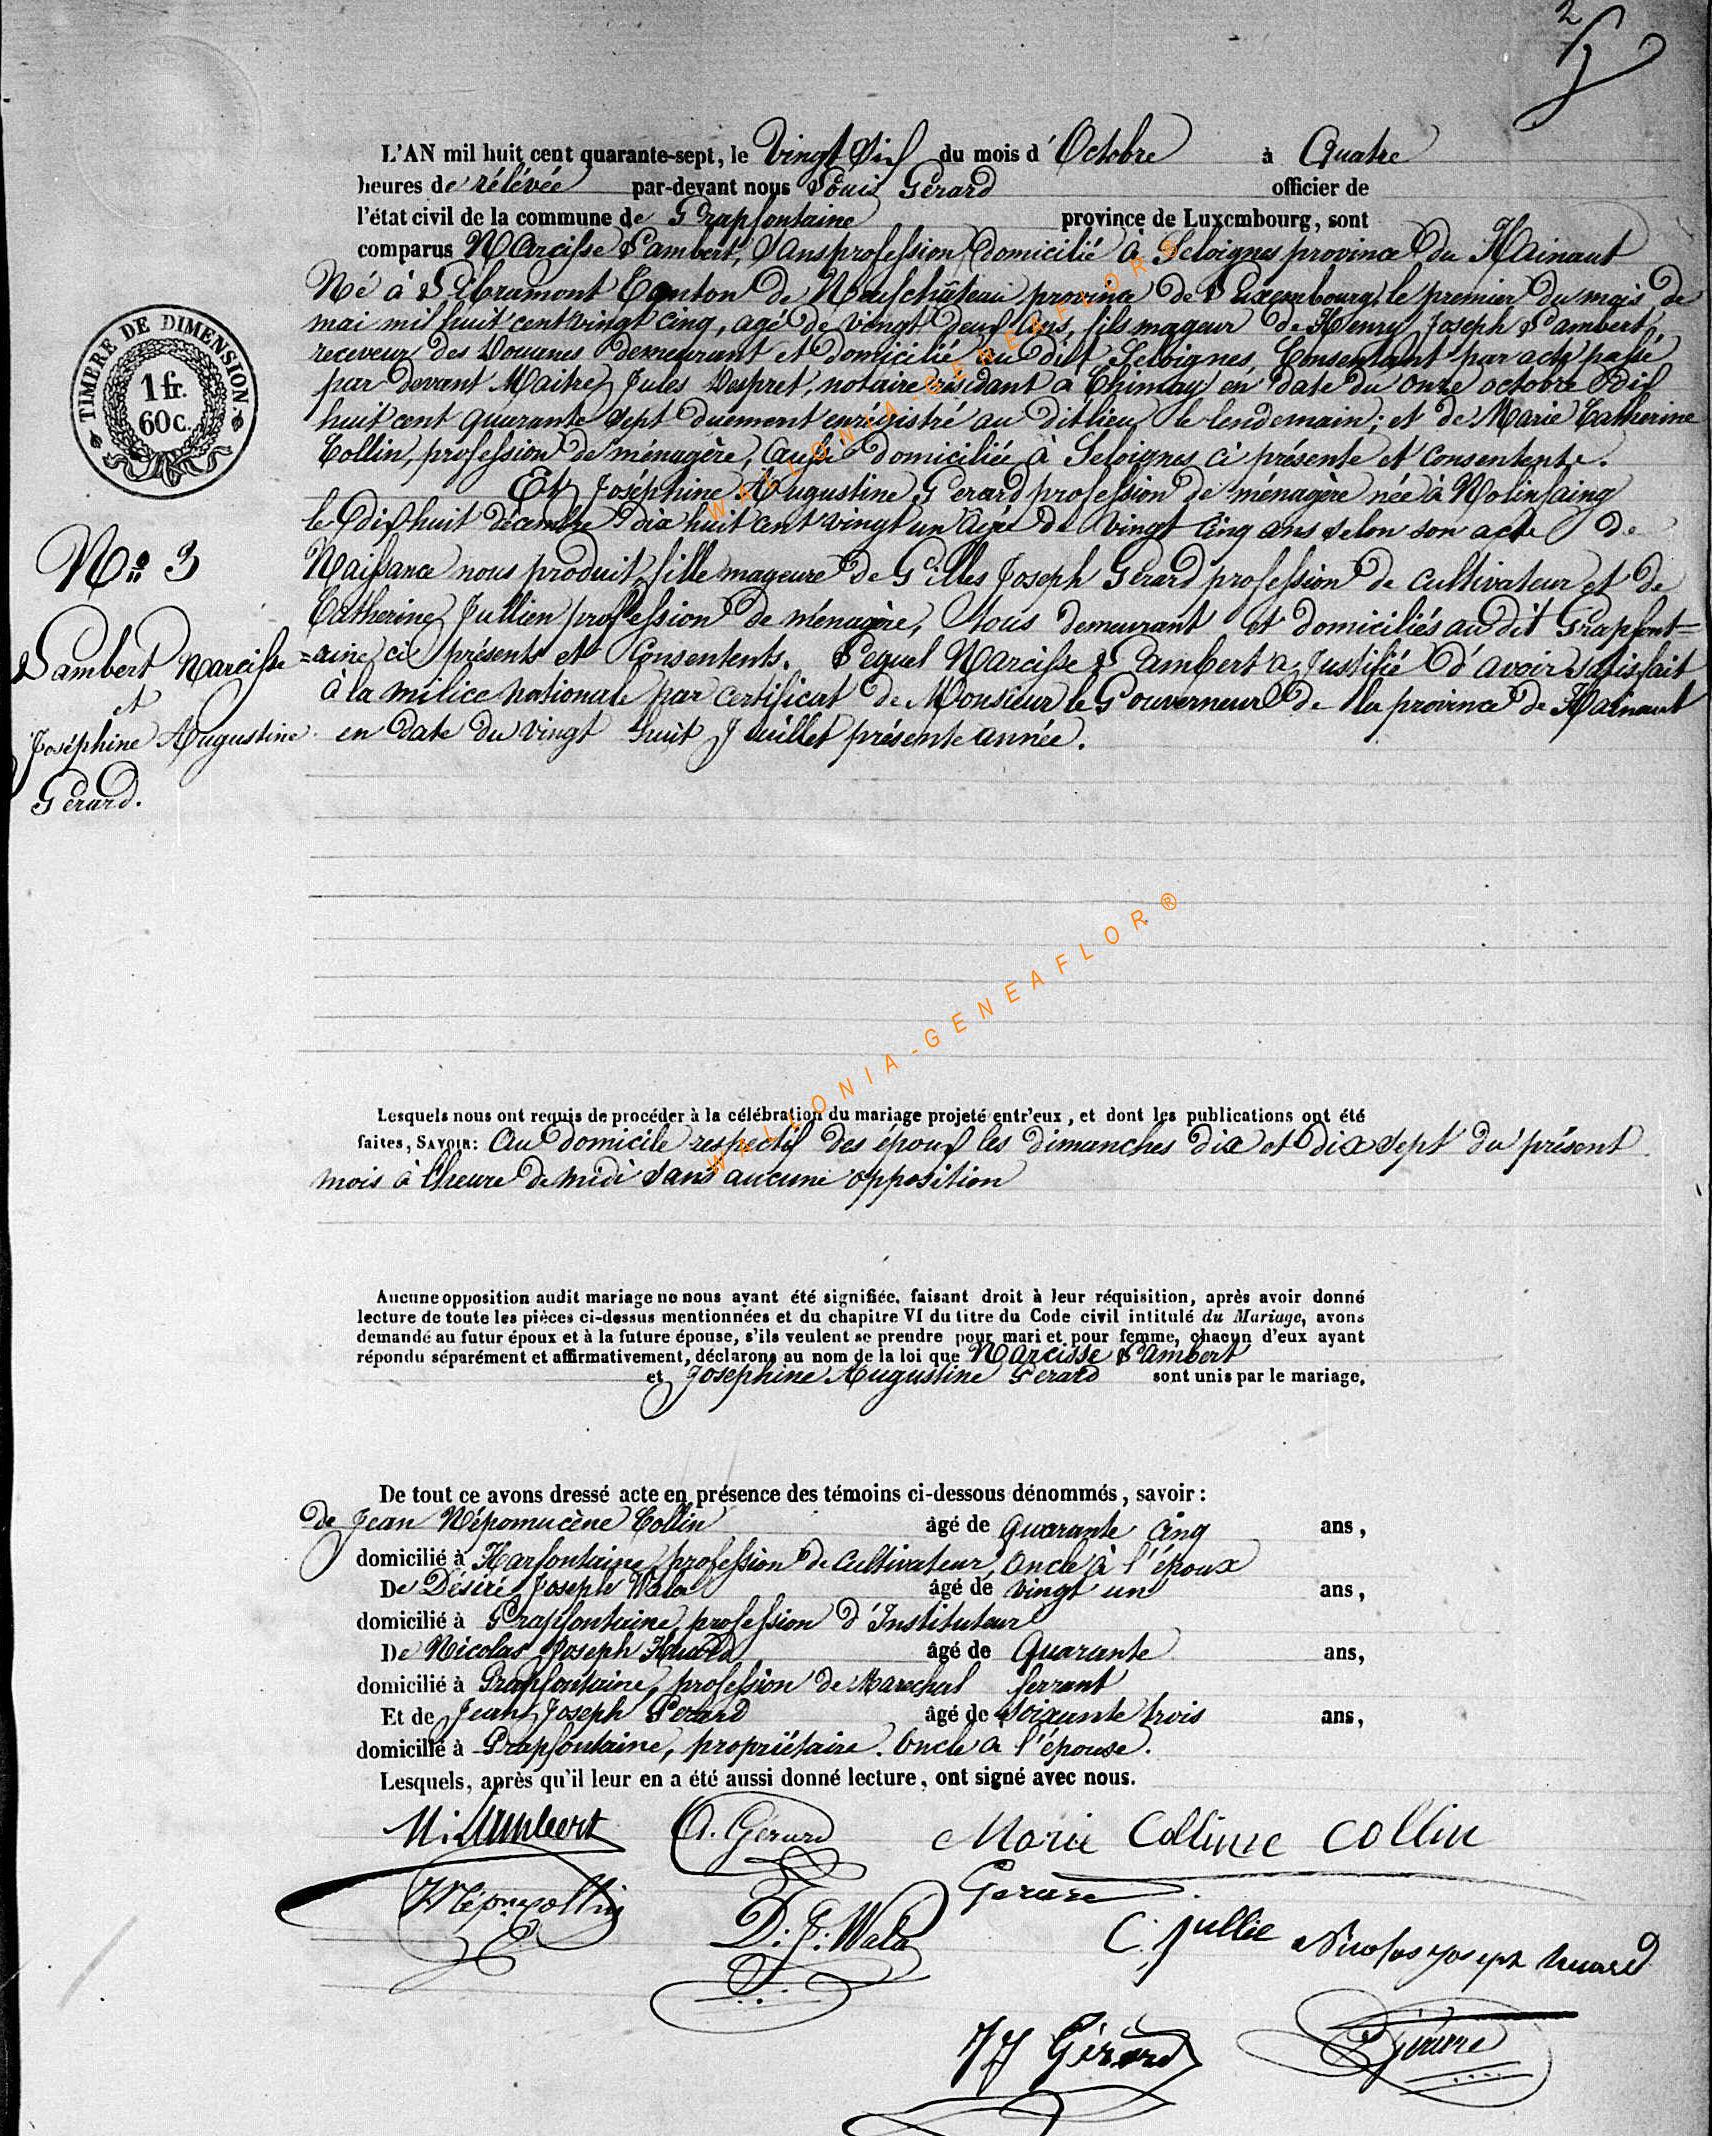 2
L'AN mil huit cent quarante-sept, le Vingt Six du mois d'Octobre à Quatre
heures de rélévée par-devant nous Louis Gérard officier de
l'état civil de la commune de Grapfontaine province de Luxembourg, sont
comparus Narcisse Lambert, Sans profession, domicilié à Seloignes province du Hainaut
Né à Libramont Canton de Neufchâteau province de Luxembourg, le premier du mois de
mai mil huit cent vingt cinq, agé de vingt deux ans, fils mageur de Henry Joseph Lambert,
receveur des Douanes demeurant et domicilié au dit Seloignes, Consentant par acte passé
par devant Maitre Jules Despret, notaire résidant à Chimay en date du onze octobre dix
huit cent quarante sept duement enrégistré au dit lieu le lendemain; et de Marie Catherine
Collin, profession de ménagère, aussi domiciliée à Seloignes ci présente et consentente.
Et Joséphine Augustine Gerard profession de ménagère née à Molinfaing
le dix huit décembre dix huit cent vingt un agée de vingt cinq ans selon son acte de
Naissance nous produit, fille mageure de Gilles Joseph Gérard profession de cultivateur et de
Catherine Jullien profession de ménagère, tous demeurant et domiciliés au dit Grapfont=
=aine, ci présents et Consentents. Lequel Narcisse Lambert a Justifié d'avoir satisfait
à la milice nationale par certificat de Monsieur le Gouverneur de la province de Hainaut
en date du vingt huit Juillet présente année.
TIMBRE DE DIMENSION.
1 fr.
60 c.
No 3
Lambert Narcisse
et
Joséphine Augustine
Gérard.
WALLONIA-GENEAFLOR®
WALLONIA-GENEAFLOR®
Lesquels nous ont requis de procéder à la célébration du mariage projeté entr'eux, et dont les publications ont été
faites, SAVOIR: Au domicile respectif des époux les dimanches dix et dix sept du présent
mois à l'heure de midi sans aucune opposition
Aucune opposition audit mariage ne nous ayant été signifiée, faisant droit à leur réquisition, après avoir donné
lecture de toute les pièces ci-dessus mentionnées et du chapitre VI du titre du Code civil intitulé du Mariage, avons
demandé au futur époux et à la future épouse, s'ils veulent se prendre pour mari et pour femme, chacun d'eux ayant
répondu séparément et affirmativement, déclarons au nom de la loi que Narcisse Lambert
et Josephine Augustine Gerard sont unis par le mariage,
De tout ce avons dressé acte en présence des témoins ci-dessous dénommés, savoir:
de Jean Népomucène Collin âgé de quarante cinq ans,
domicilié à Harfontaine, profession de cultivateur, oncle à l'époux
De Désiré Joseph Wala âgé de vingt un ans,
domicilié à Grapfontaine, profession d'Instituteur
De Nicolas Joseph Huard âgé de Quarante ans,
domicilié à Grapfontaine, profession de Marechal ferrant
Et de Jean Joseph Gerard âgé de soixante trois ans,
domicilié à Grapfontaine, propriétaire. Oncle à l'épouse.
Lesquels, après qu'il leur en a été aussi donné lecture, ont signé avec nous.
N. Lambert A. Gérard Marie Colline Collin
JNépm Collin Gerard
D. J. Wala C. Jullie Nicolas joseph huard
JJ Gérard L Gérard